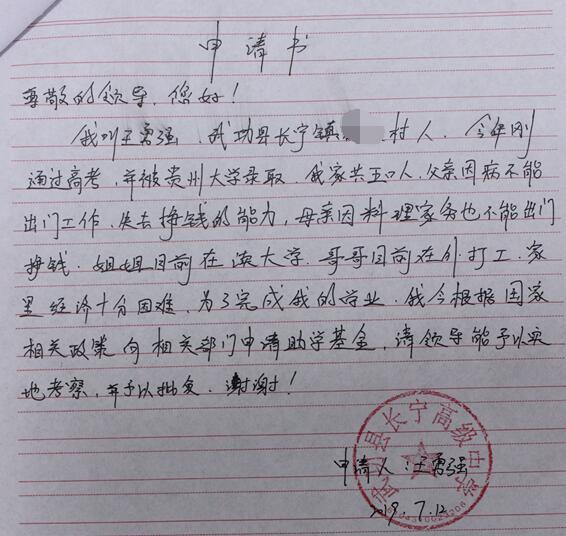 申请书
尊敬的领导、您好！
我叫王勇强、武功县长宁镇 村人、今年刚
通过高考、并被贵州大学录取、我家共五口人、父亲因病不能
出门工作、失去挣钱的能力，母亲因料理家务也不能出门
挣钱、姐姐目前在读大学、哥哥目前在外打工、家
里经济十分困难、为了完成我的学业、我今根据国家
相关政策向相关部门申请助学基金、请领导能予以实
地考察，并予以批复、谢谢！
申请人：王勇强
2019.7.12
武功县长宁高级中学